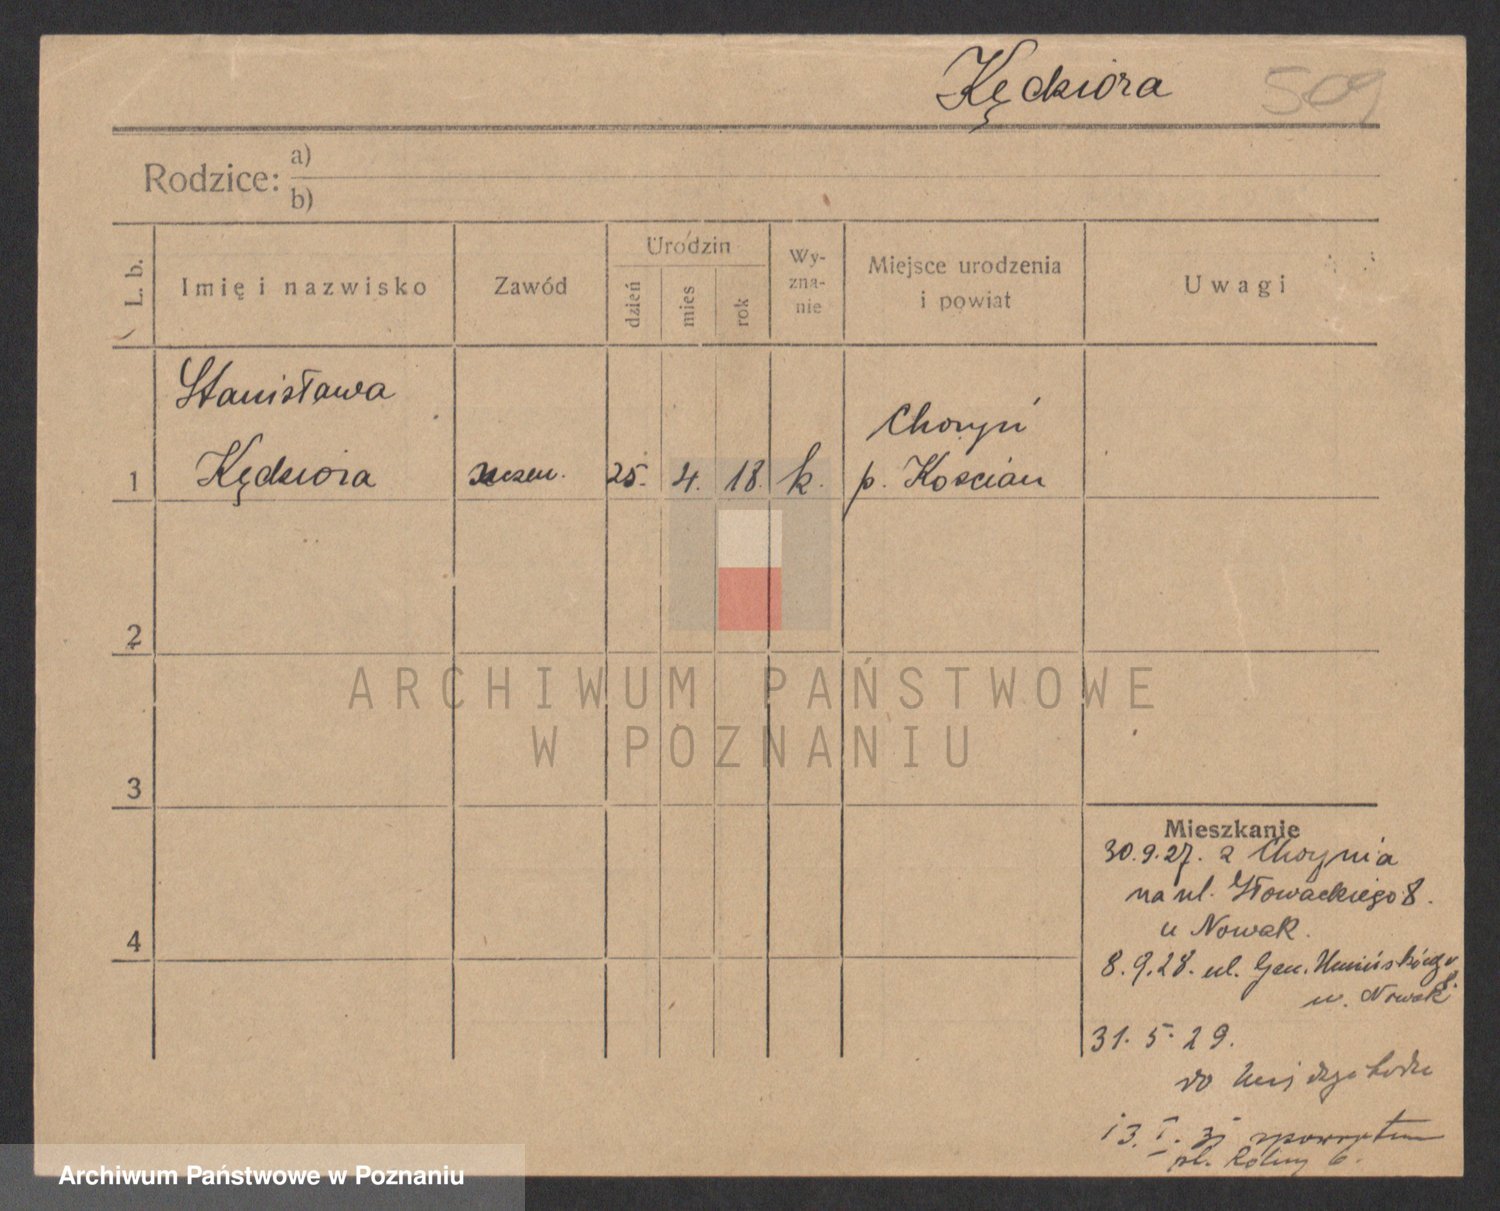 Kędziora 509
Rodzice: a)
b)
L. b.
Imię i nazwisko
Zawód
Urodzin
dzień
mies
rok
Wy-
zna-
nie
Miejsce urodzenia
i powiat
Uwagi
Stanisława
Choryń
1 Kędziora uczen. 25. 4. 18. k. p. Kościan
2
3
4
Mieszkanie
30.9.27. z Chorynia
na ul. Słowackiego 8.
u Nowak.
8.9.28. ul. Gen. Umińskiego
u. Nowak
31. 5. 29.
do
13. I. 31 spowrotem
pl. Rolny 6.
ARCHIWUM PAŃSTWOWE
W POZNANIU
Archiwum Państwowe w Poznaniu